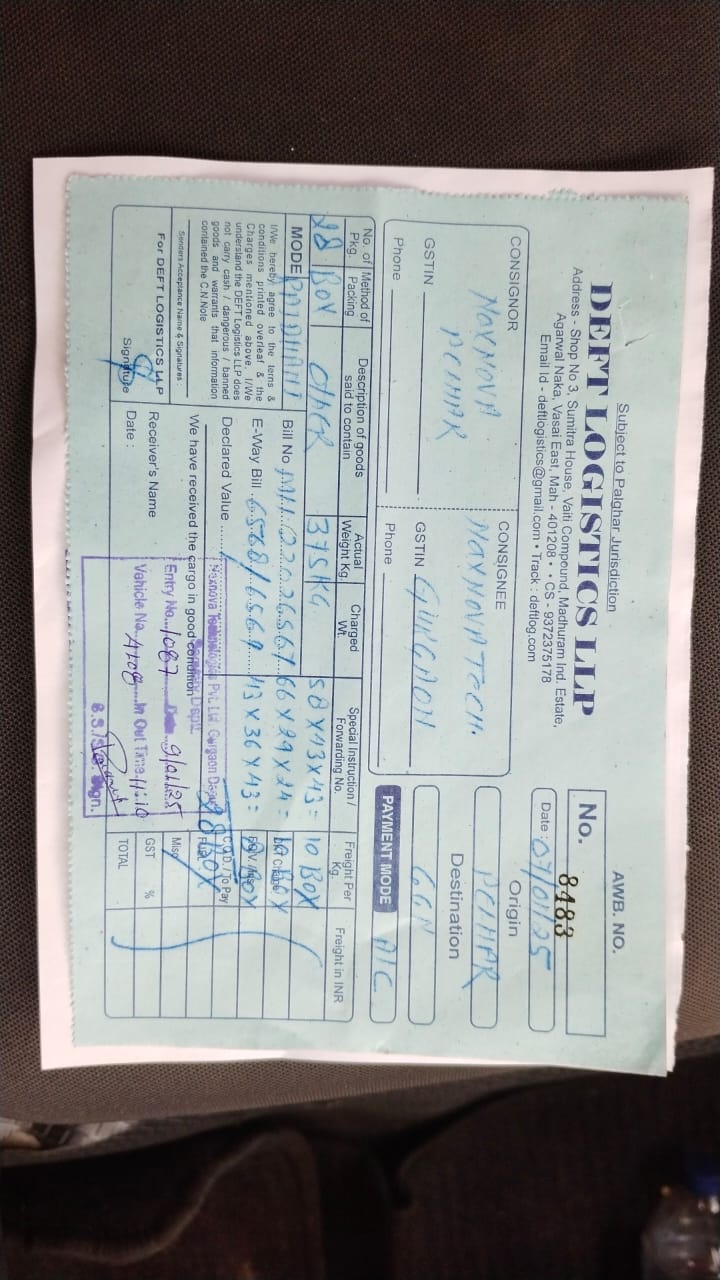 Subject to Palghar Jurisdiction
DEFT LOGISTICS LLP
Address - Shop No 3, Sumitra House, Vaiti Compound, Madhuram Ind. Estate,
Agarwal Naka, Vasai East, Mah - 401208 • • CS - 9372375178
Email Id - deftlogistics@gmail.com • Track : deftlog.com
AWB. NO.
No. 8483
Date : 07/01/25
CONSIGNOR
NOXNOVA
PELHAR
GSTIN
Phone
CONSIGNEE
NOXNOVA TECH
GSTIN GURGAON
Phone
Origin
PELHAR
Destination
GGN
PAYMENT MODE A/C
No. of Pkg.
Method of Packing
Description of goods said to contain
Actual Weight Kg
Charged Wt.
Special Instruction / Forwarding No.
Freight Per Kg.
Freight in INR
28 BOX OTHER 375KG 58 X 43 X 43 = 10 BOX
MODE
Bill No
66 X 29 X 24 = 10 BOX
E-Way Bill 6568/6569
43 X 36 X 43 =
BOX
Declared Value
28 BOX
C.O.D. / To Pay
Misc
GST %
TOTAL
I/We hereby agree to the terns &
conditions printed overleaf & the
Charges mentioned above. I/We
understand the DEFT Logistics LLP does
not carry cash / dangerous / banned
goods and warrants that information
contained the C.N.Note
Senders Acceptance Name & Signatures :
For DEFT LOGISTICS LLP
Signature
We have received the cargo in good condition
Receiver's Name
Date :
Noxnova Technologies Pvt. Ltd. Gurgaon
Security Deptt.
Entry No. 1087 9/01/25
Vehicle No. 4108 In Out Time 11:10
Sign.